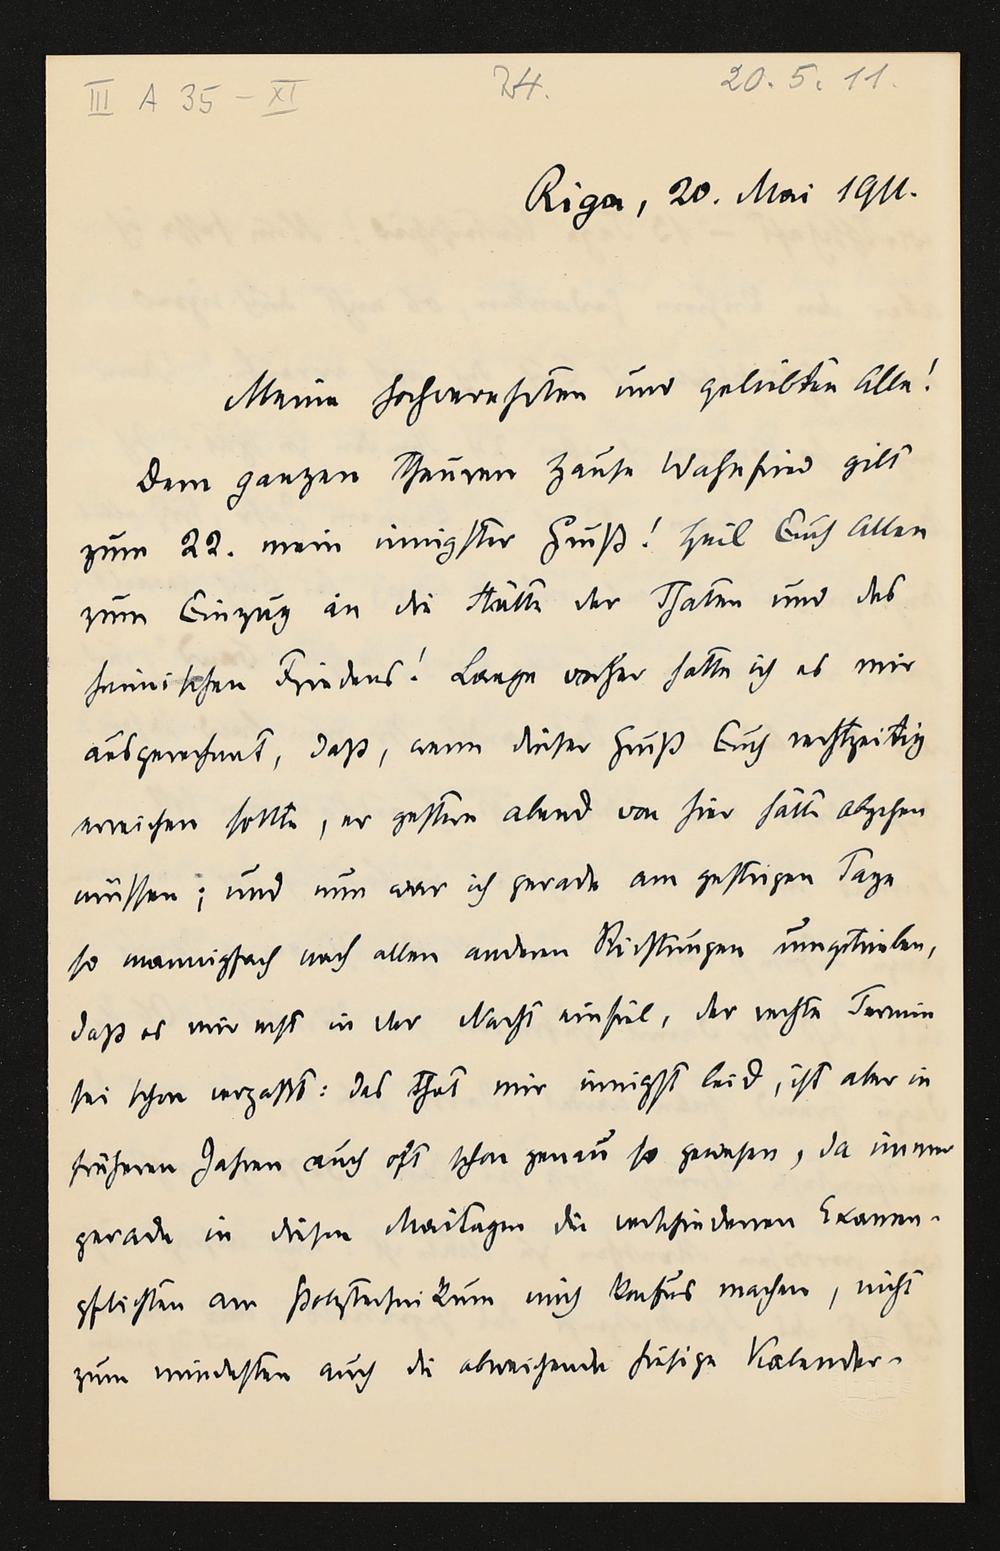 III A 35 – XI 24. 20. 5. 11.
Riga, 20. Mai 1911.
Meine hochverehrten und geliebten Alle!
Dem ganzen theuren Hause Wahnfried gilt
zum 22. mein innigster Gruß! Heil Euch Allen
zum Einzug in die Stätte der Thaten und des
heimischen Friedens! Lange vorher hatte ich es mir
ausgerechnet, daß, wenn dieser Gruß Euch rechtzeitig
erreichen sollte, er gestern abend von hier hätte abgehen
müssen; und nun war ich gerade am gestrigen Tage
so mannigfach nach allen anderen Richtungen umgetrieben,
daß es mir erst in der Nacht einfiel, der rechte Termin
sei schon verpaßt: das that mir innigst leid, ist aber in
früheren Jahren auch oft schon genau so gewesen, da immer
gerade in diesen Maitagen die verschiedenen Examen-
pflichten am Polytechnikum mich konfus machen, nicht
zum mindesten auch die abweichende hiesige Kalender-